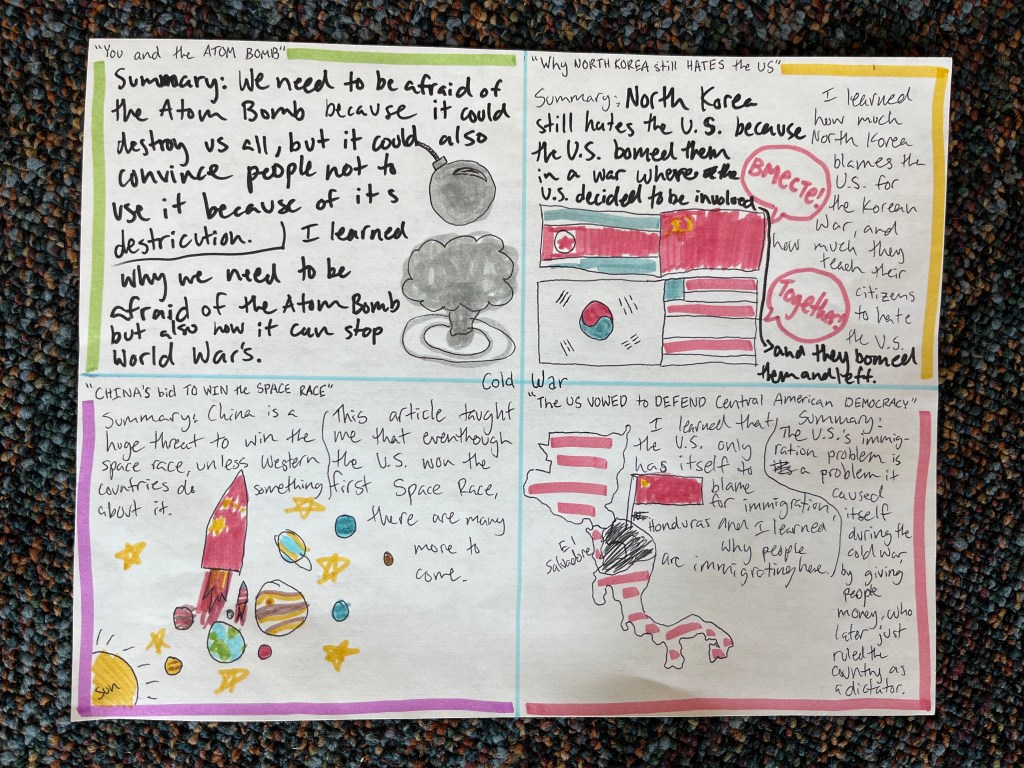 "You and the ATOM BOMB"
Summary: We need to be afraid of
the Atom Bomb because it could
destroy us all, but it could also
convince people not to
use it because of it s
destricution. I learned
why we need to be
afraid of the Atom Bomb
but also how it can stop
World War's.
"Why NORTH KOREA still HATES the US"
Summary: North Korea
still hates the U.S. because
the U.S. bomed them
in a war where the
U.S. decided to be involved
and they bomed
them and left.
I learned
how much
North Korea
blames the
U.S. for
the Korean
War, and
how much they
teach their
citizens
to hate
the U.S.
Вместе!
Together!
Cold War
"CHINA's bid TO WIN the SPACE RACE"
Summary: China is a
huge threat to win the
space race, unless Western
countries do something
about it.
This article taught
me that eventhough
the U.S. won the
first Space Race,
there are many
more to
come.
Sun
"The US VOWED to DEFEND Central American DEMOCRACY"
I learned that
the U.S. only
has itself to
blame
for immigration,
And I learned
why people
are immigrating here.
Honduras
El
Salvador
Summary:
The U.S.'s immig-
ration problem is
a problem it
caused
itself
during the
cold war,
by giving
people
money, who
later just
ruled the
country as
a dictator.